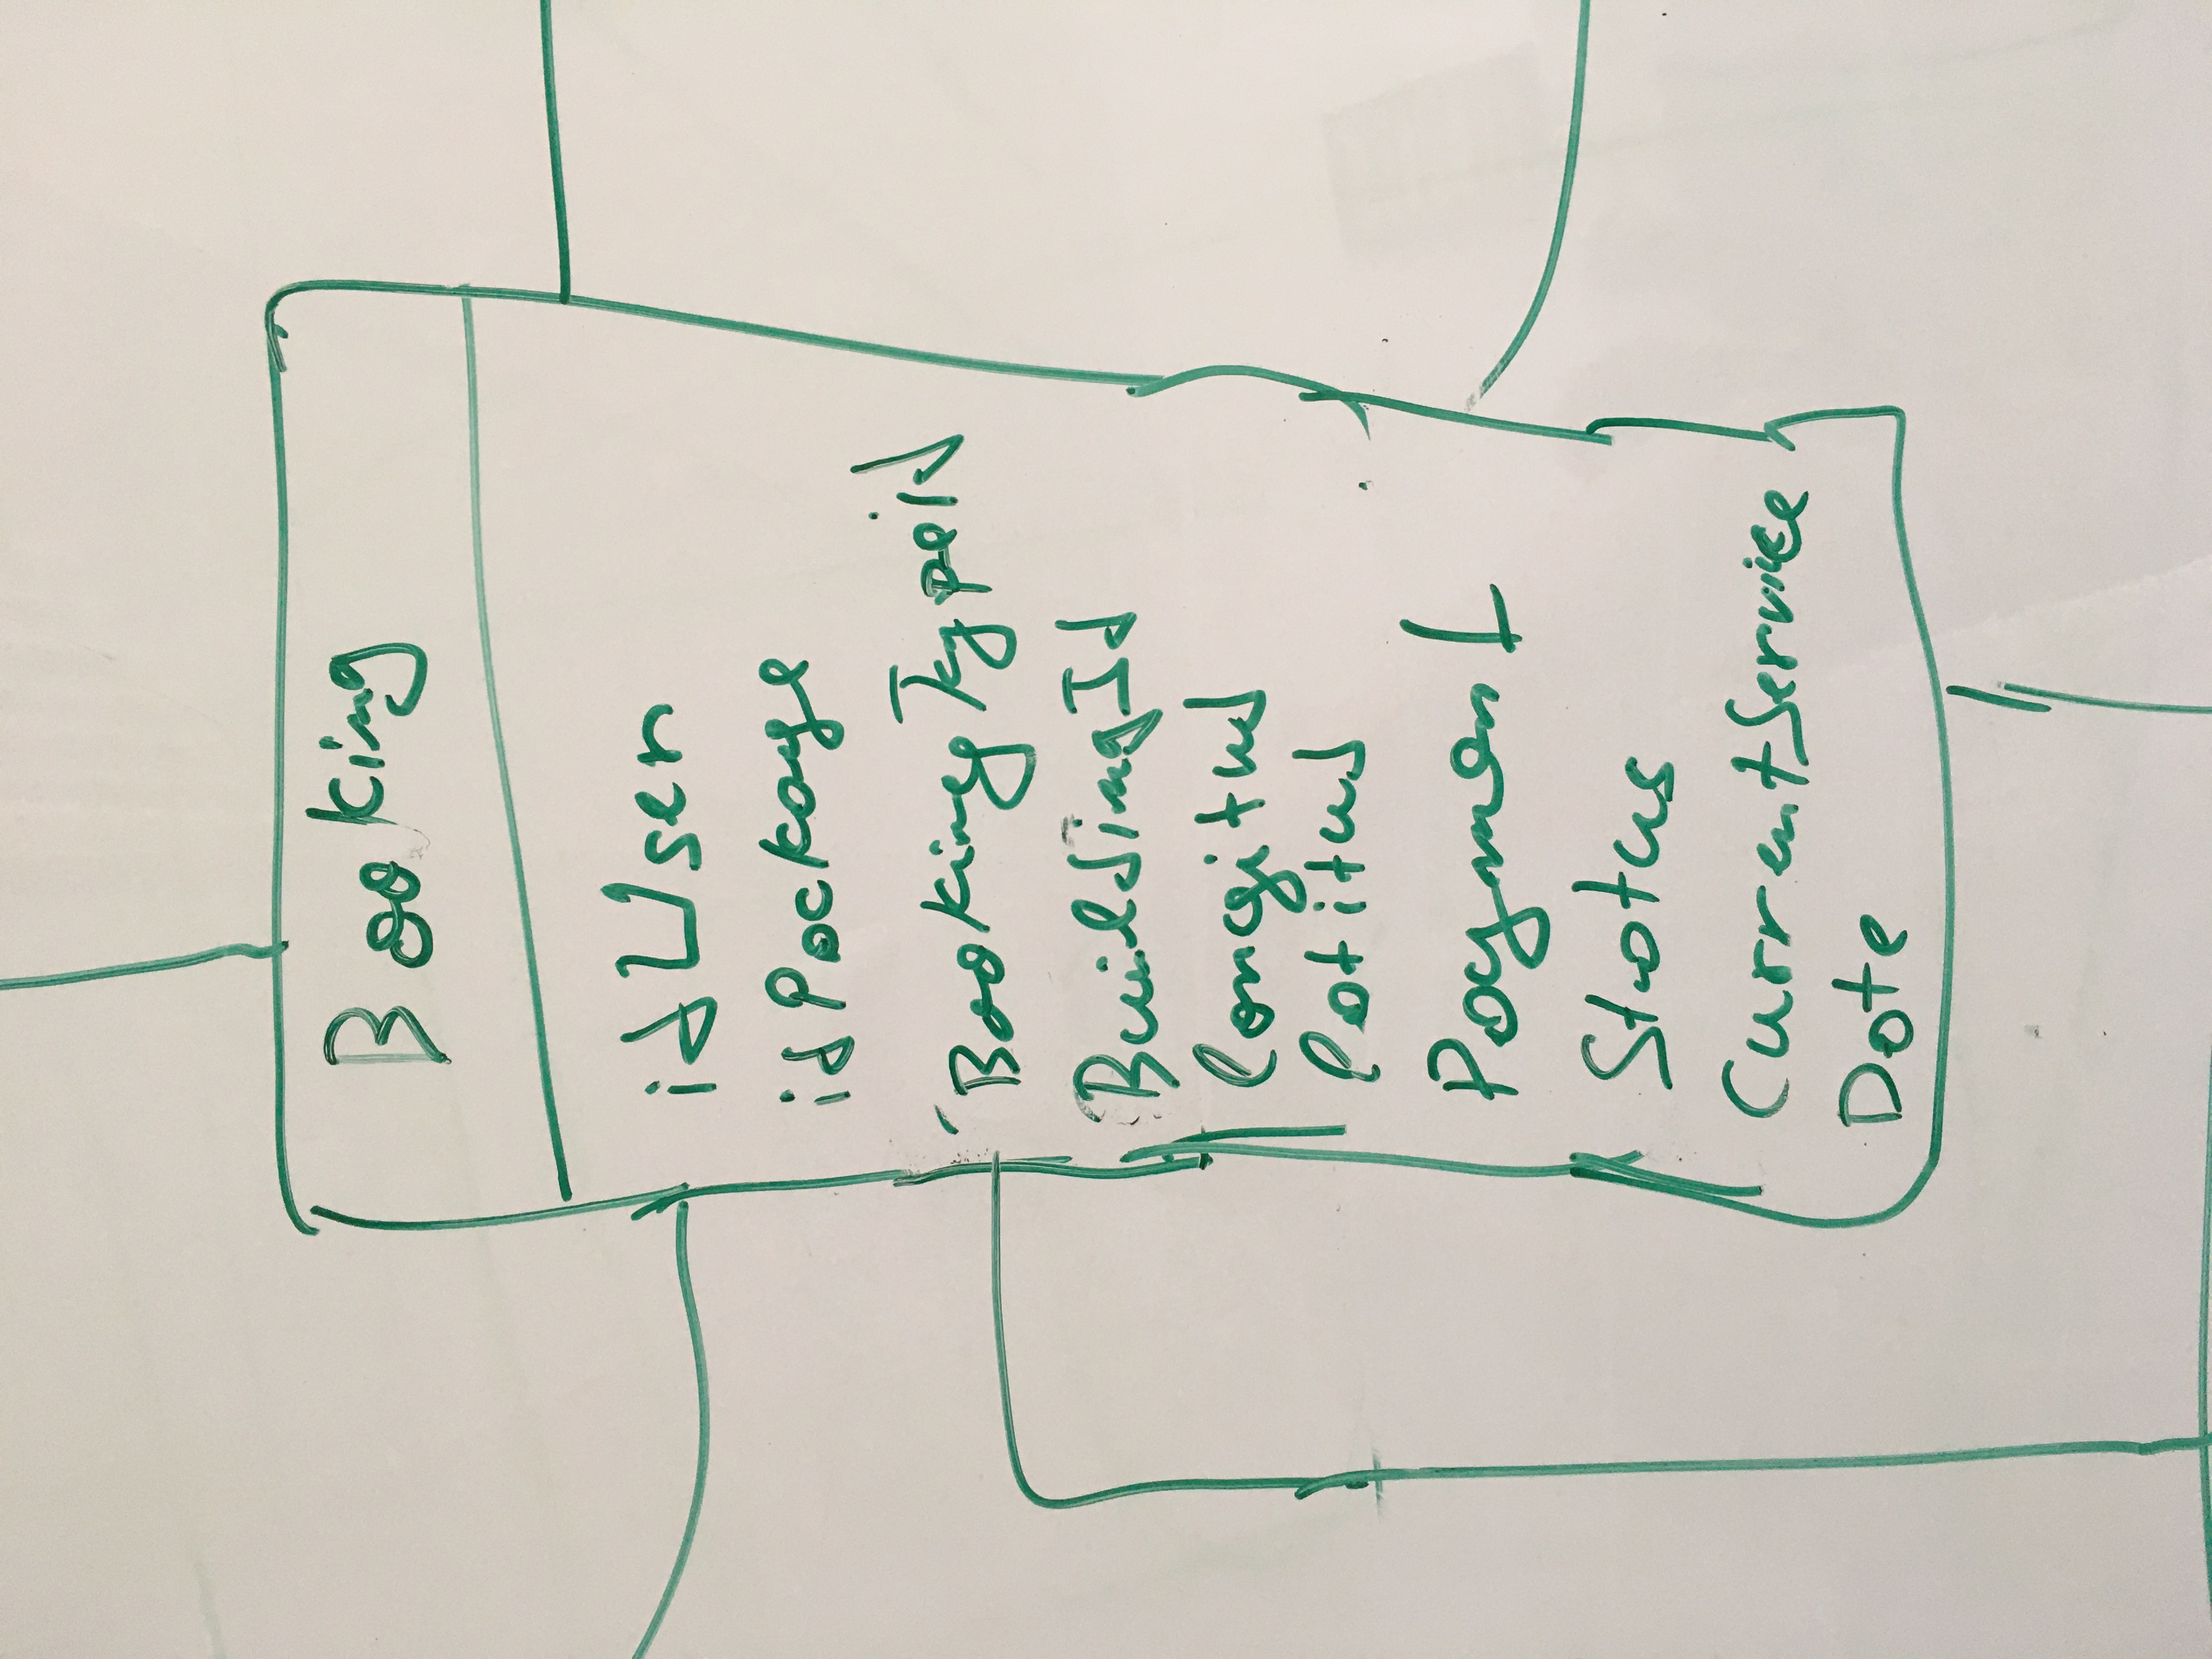 Booking
idUser
idPackage
BookingTypeid
BuildingId
longitud
latitud
Payment
Status
CurrentService
Date